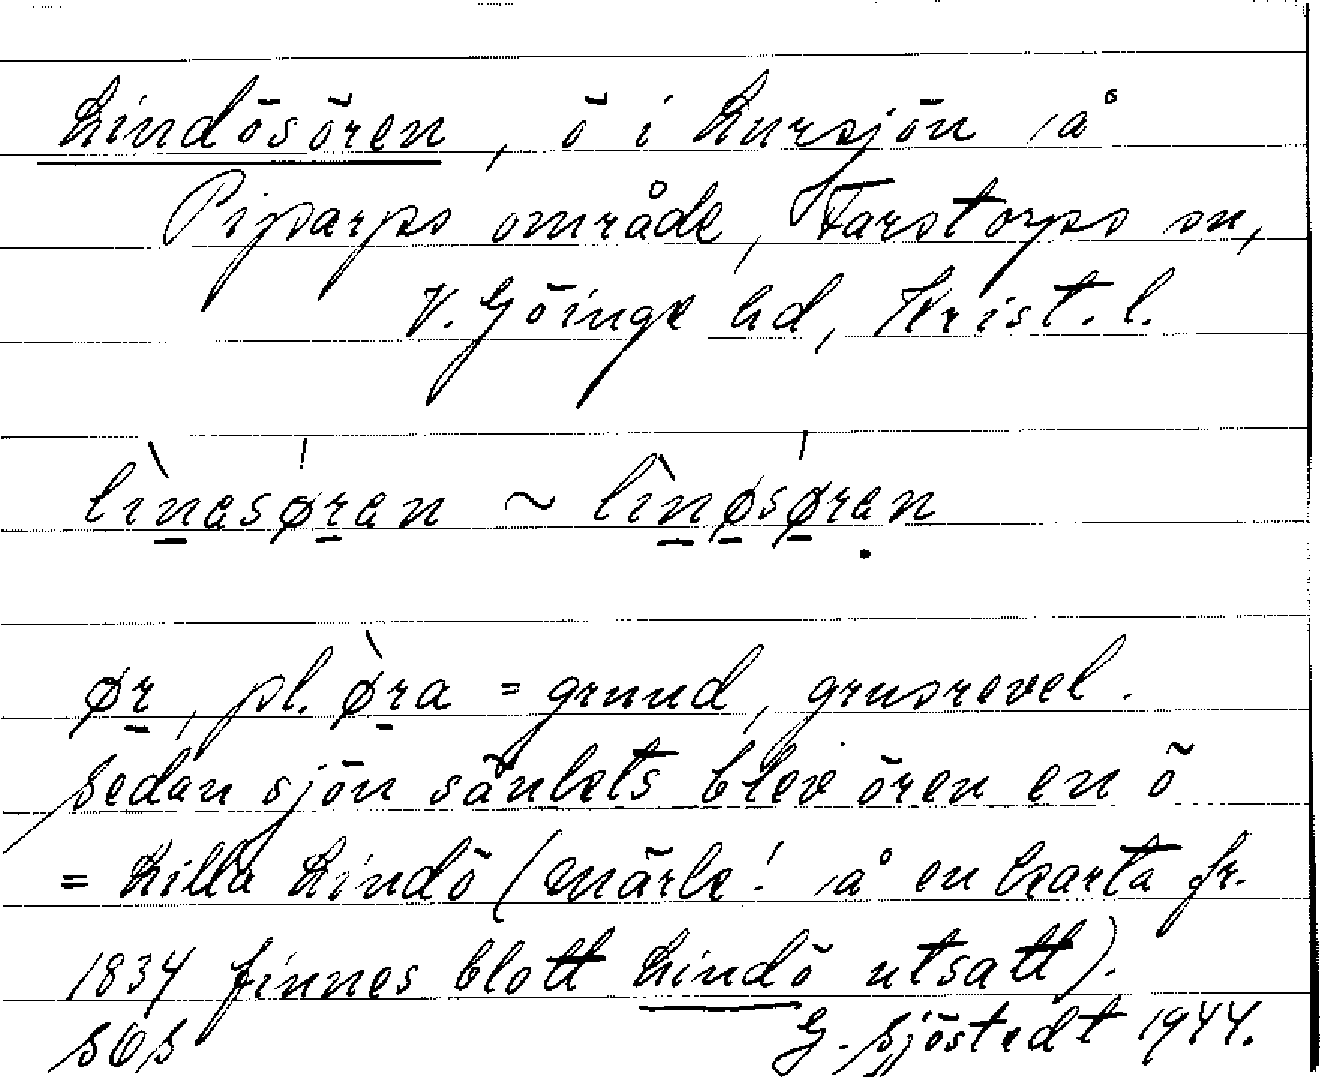 Lindösören, ö i Lursjön, å
Piparps område, Farstorps sn,
V. Göinge hd, Krist. l.
lìnəsørən ~ lìnøsørən
ør, pl. øra = grund, grusrevel.
Sedan sjön sänkts blev ören en ö
= Lilla Lindö (märk! å en karta fr.
1834 finnes blott Lindö utsatt).
SOS G. Sjöstedt 1944.